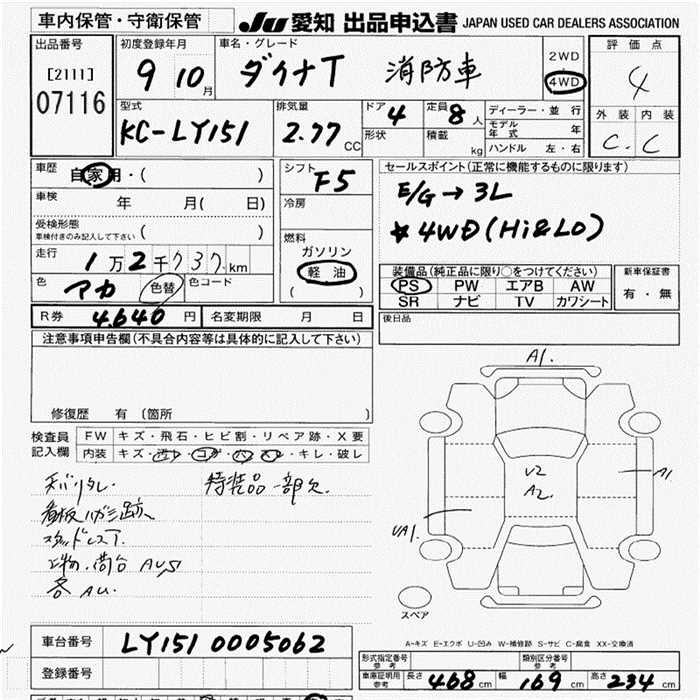 車内保管・守衛保管 JU 愛知 出品申込書 JAPAN USED CAR DEALERS ASSOCIATION
出品番号 初度登録年月 車名・グレード 2WD 評価点
[2111] 9 10月 ダイナT 消防車 4WD 4
07116 型式 排気量 ドア 4 定員 8人 ディーラー・並行 外装 内装
KC-LY151 2.77 CC 形状 積載 kg モデル年式 年 C. C
ハンドル 左・右
車歴 自家用・( ) シフト F5 セールスポイント(正常に機能するものに限ります)
車検 年 月( 日) 冷房 E/G→3L
受検形態 車検付きのみ記入して下さい ( ) 燃料 *4WD(Hi&LO)
走行 1万2千737km ガソリン
色 アカ 色替 色コード 軽油
( )
装備品(純正品に限り○をつけてください) 新車保証書
PS PW エアB AW 有・無
SR ナビ TV カワシート
R券 4,640円 名変期限 月 日 後日品
注意事項申告欄(不具合内容等は具体的に記入して下さい)
修復歴 有 (箇所 )
検査員 FW キズ・飛石・ヒビ割・リペア跡・X要
記入欄 内装 キズ・汚レ・コゲ・穴・スレ・キレ・破レ
特装品一部欠
看板ハガシ跡
スタッドレスT.
各 AU.
A1.
V2
A2.
A1
UA1.
スペア
A-キズ E-エクボ U-凹み W-補修跡 S-サビ C-腐食 XX-交換済
車台番号 LY151 0005062
登録番号
形式指定番号 参考 類別区分番号 参考
車庫証明用 参考 長さ 468 cm 幅 169 cm 高さ 234 cm